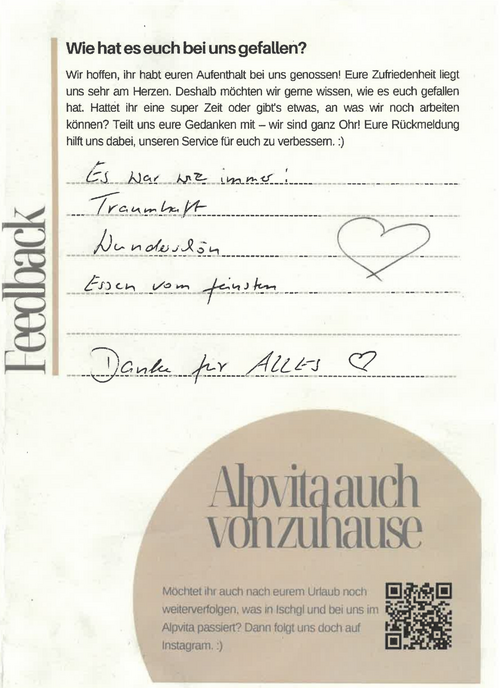 Wie hat es euch bei uns gefallen?
Wir hoffen, ihr habt euren Aufenthalt bei uns genossen! Eure Zufriedenheit liegt
uns sehr am Herzen. Deshalb möchten wir gerne wissen, wie es euch gefallen
hat. Hattet ihr eine super Zeit oder gibt's etwas, an was wir noch arbeiten
können? Teilt uns eure Gedanken mit – wir sind ganz Ohr! Eure Rückmeldung
hilft uns dabei, unseren Service für euch zu verbessern. :)
Feedback
Es war wie immer!
Traumhaft
Wunderschön
Essen vom feinsten
Danke für ALLES
Alpvita auch
von zuhause
Möchtet ihr auch nach eurem Urlaub noch
weiterverfolgen, was in Ischgl und bei uns im
Alpvita passiert? Dann folgt uns doch auf
Instagram. :)